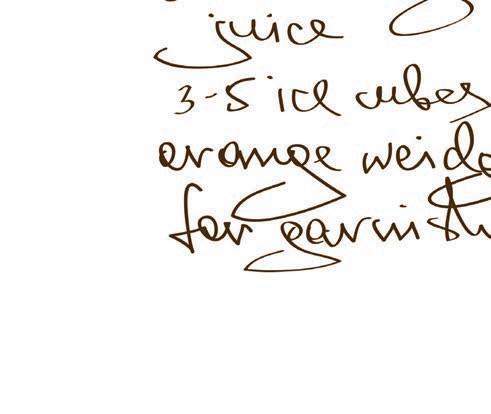 juice
3-5 ice cubes
orange
for garnish